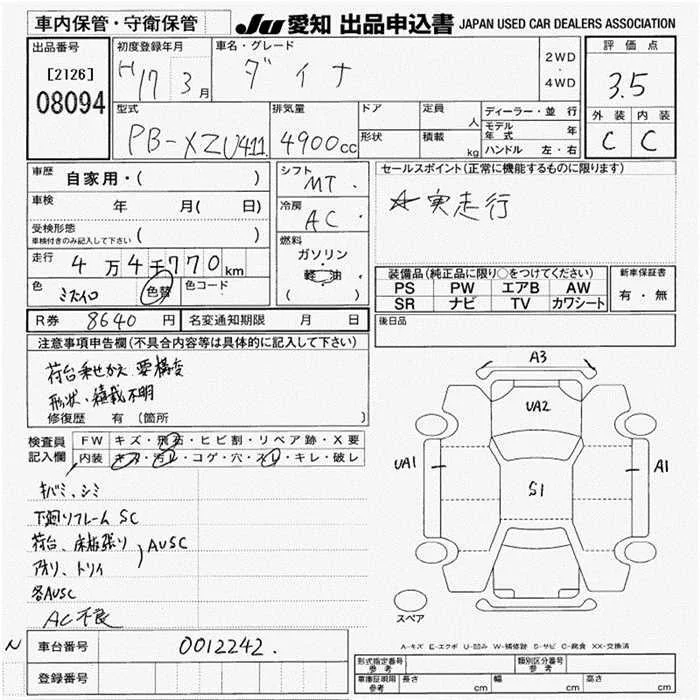 車内保管・守衛保管
JU 愛知 出品申込書 JAPAN USED CAR DEALERS ASSOCIATION
出品番号
[2126]
08094
初度登録年月
H17 3月
車名・グレード
ダイナ
2WD
・
4WD
評価点
3.5
外装 内装
C C
型式
PB-XZU411.
排気量
4900cc
ドア
形状
定員
人
積載
kg
ディーラー・並行
モデル年式 年
ハンドル 左・右
車歴
自家用・( )
車検
年 月( 日)
受検形態
車検付きのみ記入して下さい ( )
走行
4万4千770km
色
ミズイロ
色替
色コード
R券 8640円
名変通知期限 月 日
シフト
MT.
冷房
AC.
燃料
ガソリン
・
軽油
( )
セールスポイント(正常に機能するものに限ります)
☆実走行
装備品(純正品に限り○をつけてください)
PS PW エアB AW
SR ナビ TV カワシート
新車保証書
有・無
後日品
注意事項申告欄(不具合内容等は具体的に記入して下さい)
荷台乗せかえ 要構変
形状・積載不明
修復歴 有(箇所 )
検査員
記入欄
FW キズ・飛石・ヒビ割・リペア跡・X要
内装 キズ・汚レ・コゲ・穴・スレ・キレ・破レ
キバミ、シミ
下廻リフレーム SC
荷台、床板張り
AUSC
アオリ、トリイ
各AUSC
AC不良
A3
UA2
UA1
S1
A1
スペア
A-キズ E-エクボ U-凹み W-補修跡 S-サビ C-腐食 XX-交換済
N
車台番号 0012242.
登録番号
形式指定番号
参考
類別区分番号
参考
車庫証明用
参考
長さ cm
幅 cm
高さ cm